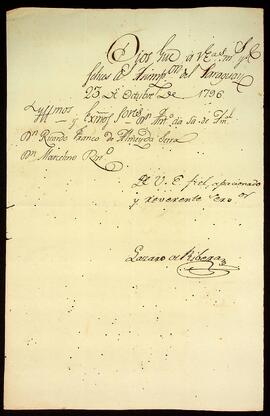 Dios gue a V Ex.as m.s a.s
felices la Asump.on del Paraguay
23 de Octubre de 1796
Ill.mos y Ex.mos Sores
Dn Ricardo Franco de Almeyda Serra
Dn Marcelino
De V. E fiel apacionado
y reverente
Lazaro de Ribera